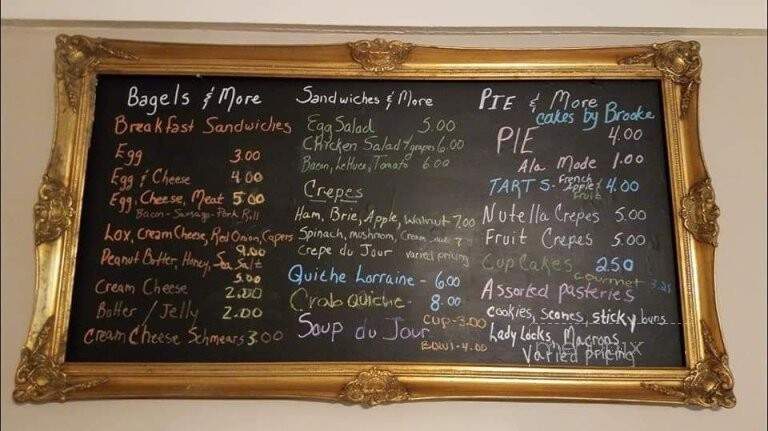 Bagels & More
Breakfast Sandwiches
Egg 3.00
Egg & Cheese 4.00
Egg, Cheese, Meat 5.00
Bacon - Sausage - Pork Roll
Lox, Cream Cheese, Red Onion, Capers
9.00
Peanut Butter, Honey, Sea Salt
5.00
Cream Cheese 2.00
Butter / Jelly 2.00
Cream Cheese Schmears 3.00
Sandwiches & More
Egg Salad 5.00
Chicken Salad w/ grapes 6.00
Bacon, Lettuce, Tomato 6.00
Crepes
Ham, Brie, Apple, Walnut 7.00
Spinach, mushroom, Cream 7
Crepe du Jour varied pricing
Quiche Lorraine - 6.00
Crab Quiche - 8.00
Soup du Jour Cup-3.00
Bowl-4.00
PIE & More
cakes by Brooke
PIE 4.00
Ala Mode 1.00
TARTS - French Apple & Fruit 4.00
Nutella Crepes 5.00
Fruit Crepes 5.00
Cup Cakes 2.50
Gourmet 3.25
Assorted pasteries
cookies, scones, sticky buns
Lady Locks, Macrons
Varied pricing